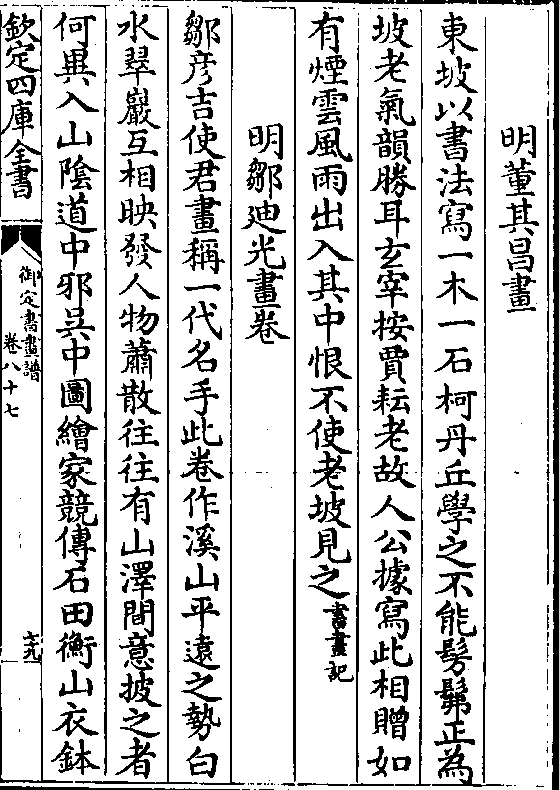 明董其昌畫
東坡以書法寫一木一石柯丹丘學之不能髣髴正為
坡老氣韻勝耳玄宰按賈耘老故人公據寫此相贈如
有煙雲風雨出入其中恨不使老坡見之書畫記
明鄒廸光畫卷
鄒彦吉使君畫稱一代名手此卷作溪山平遠之勢白
水翠巖互相映發人物蕭散往往有山澤間意披之者
何異入山陰道中邪吳中圖繪家競傳石田衡山衣鉢
欽定四庫全書
御定書畫譜
卷八十七